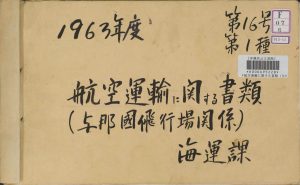 1963年度
第16号
第1種
航空運輸に関する書類
(与那國飛行場関係)
海運課